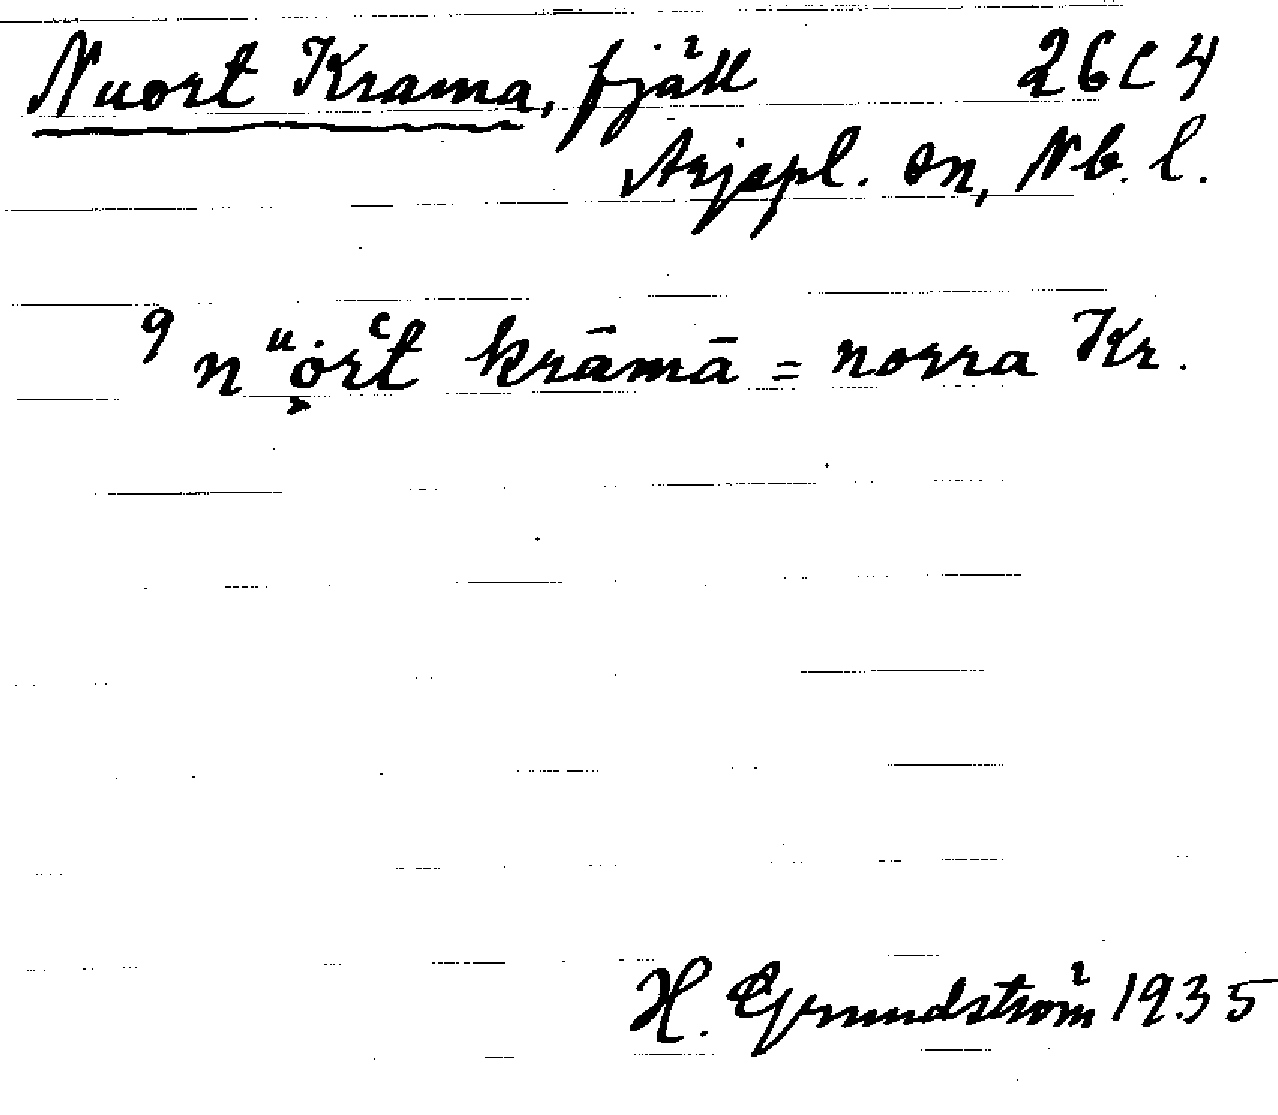 Nuort Krama, fjäll 26 C 4
Arjepl. sn, Nb. l.
9 nᵘȯ̜rʿt krāmā = norra Kr.
H. Grundström 1935